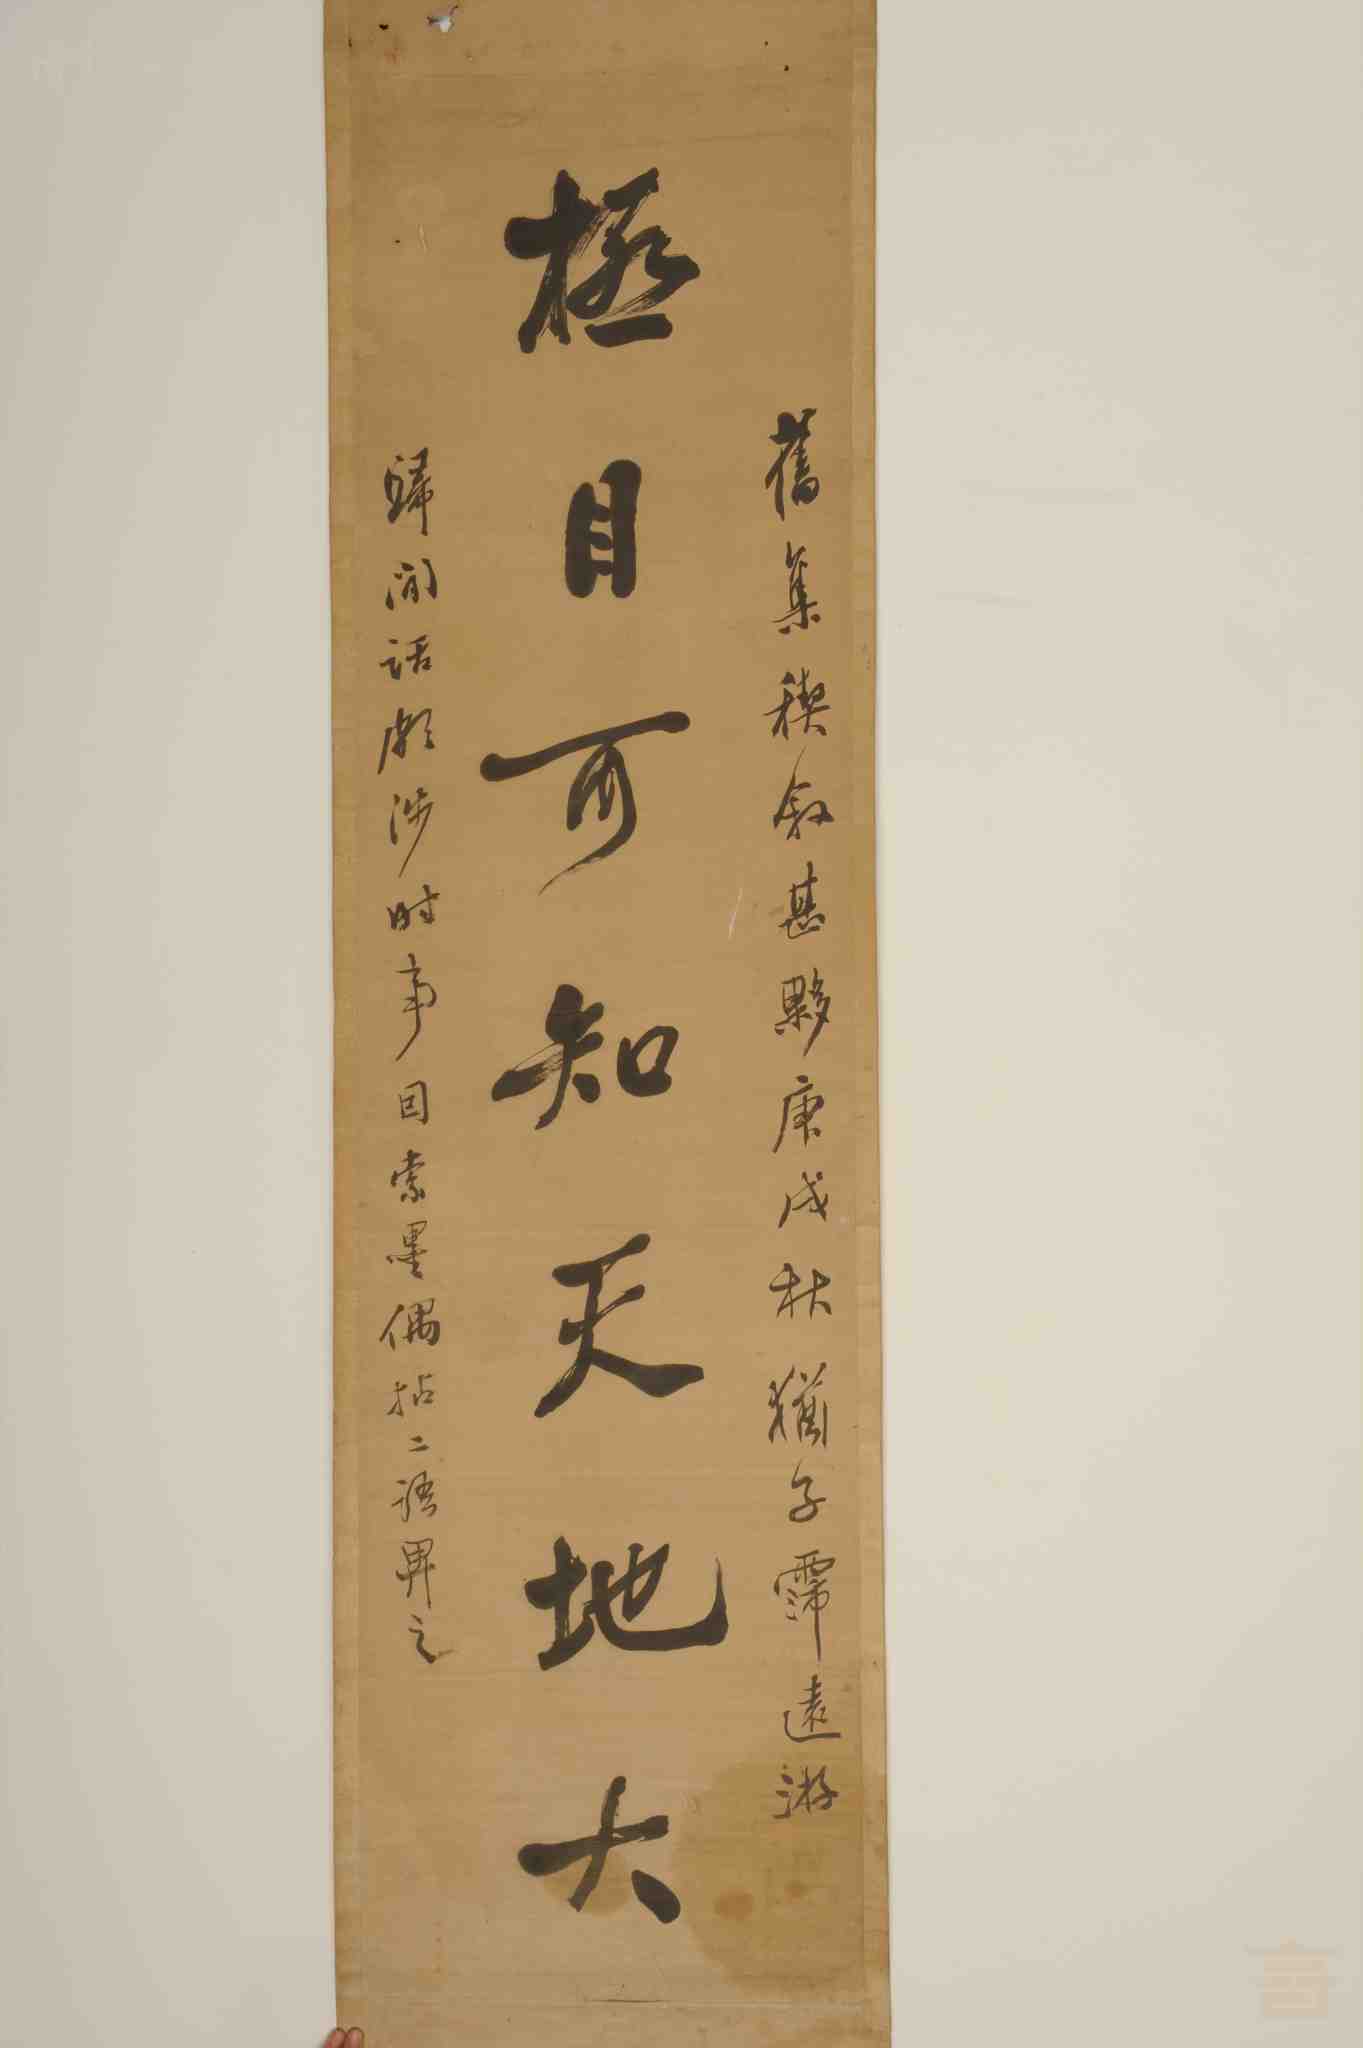 舊集禊敘甚夥庚戌秋猶子霈遠游
極目可知天地大
歸閒話頗涉時事因索墨偶拈二語畀之